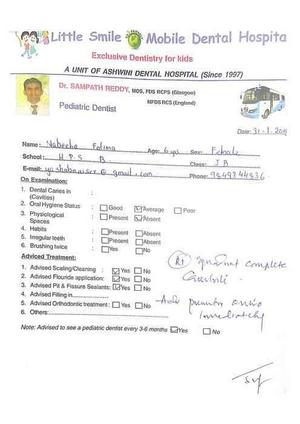 Little Smile Mobile Dental Hospita
Exclusive Dentistry for kids
A UNIT OF ASHWINI DENTAL HOSPITAL (Since 1997)
Dr. SAMPATH REDDY, MDS, FDS RCPS (Glasgow)
MFDS RCS (England)
Pediatric Dentist
Date: 31-1-
Name: Fatima Age: 6 yrs Sex: Female
School: H P S B Class: I B
E-mail: @ gmail.com Phone: 9849744836
On Examination:
1. Dental Caries in :
(Cavities)
2. Oral Hygiene Status : Good Average Poor
3. Physiological : Present Absent
Spaces
4. Habits : Present Absent
5. Irregular teeth : Present Absent
6. Brushing twice : Yes No
Adviced Treatment:
1. Advised Scaling/Cleaning : Yes No
2. Advised Fluoride application: Yes No
3. Advised Pit & Fissure Sealants: Yes No
4. Advised Filling in
5. Advised Orthodontic treatment : Yes No
6. Others:
complete
immediately
Note: Advised to see a pediatric dentist every 3-6 months Yes No